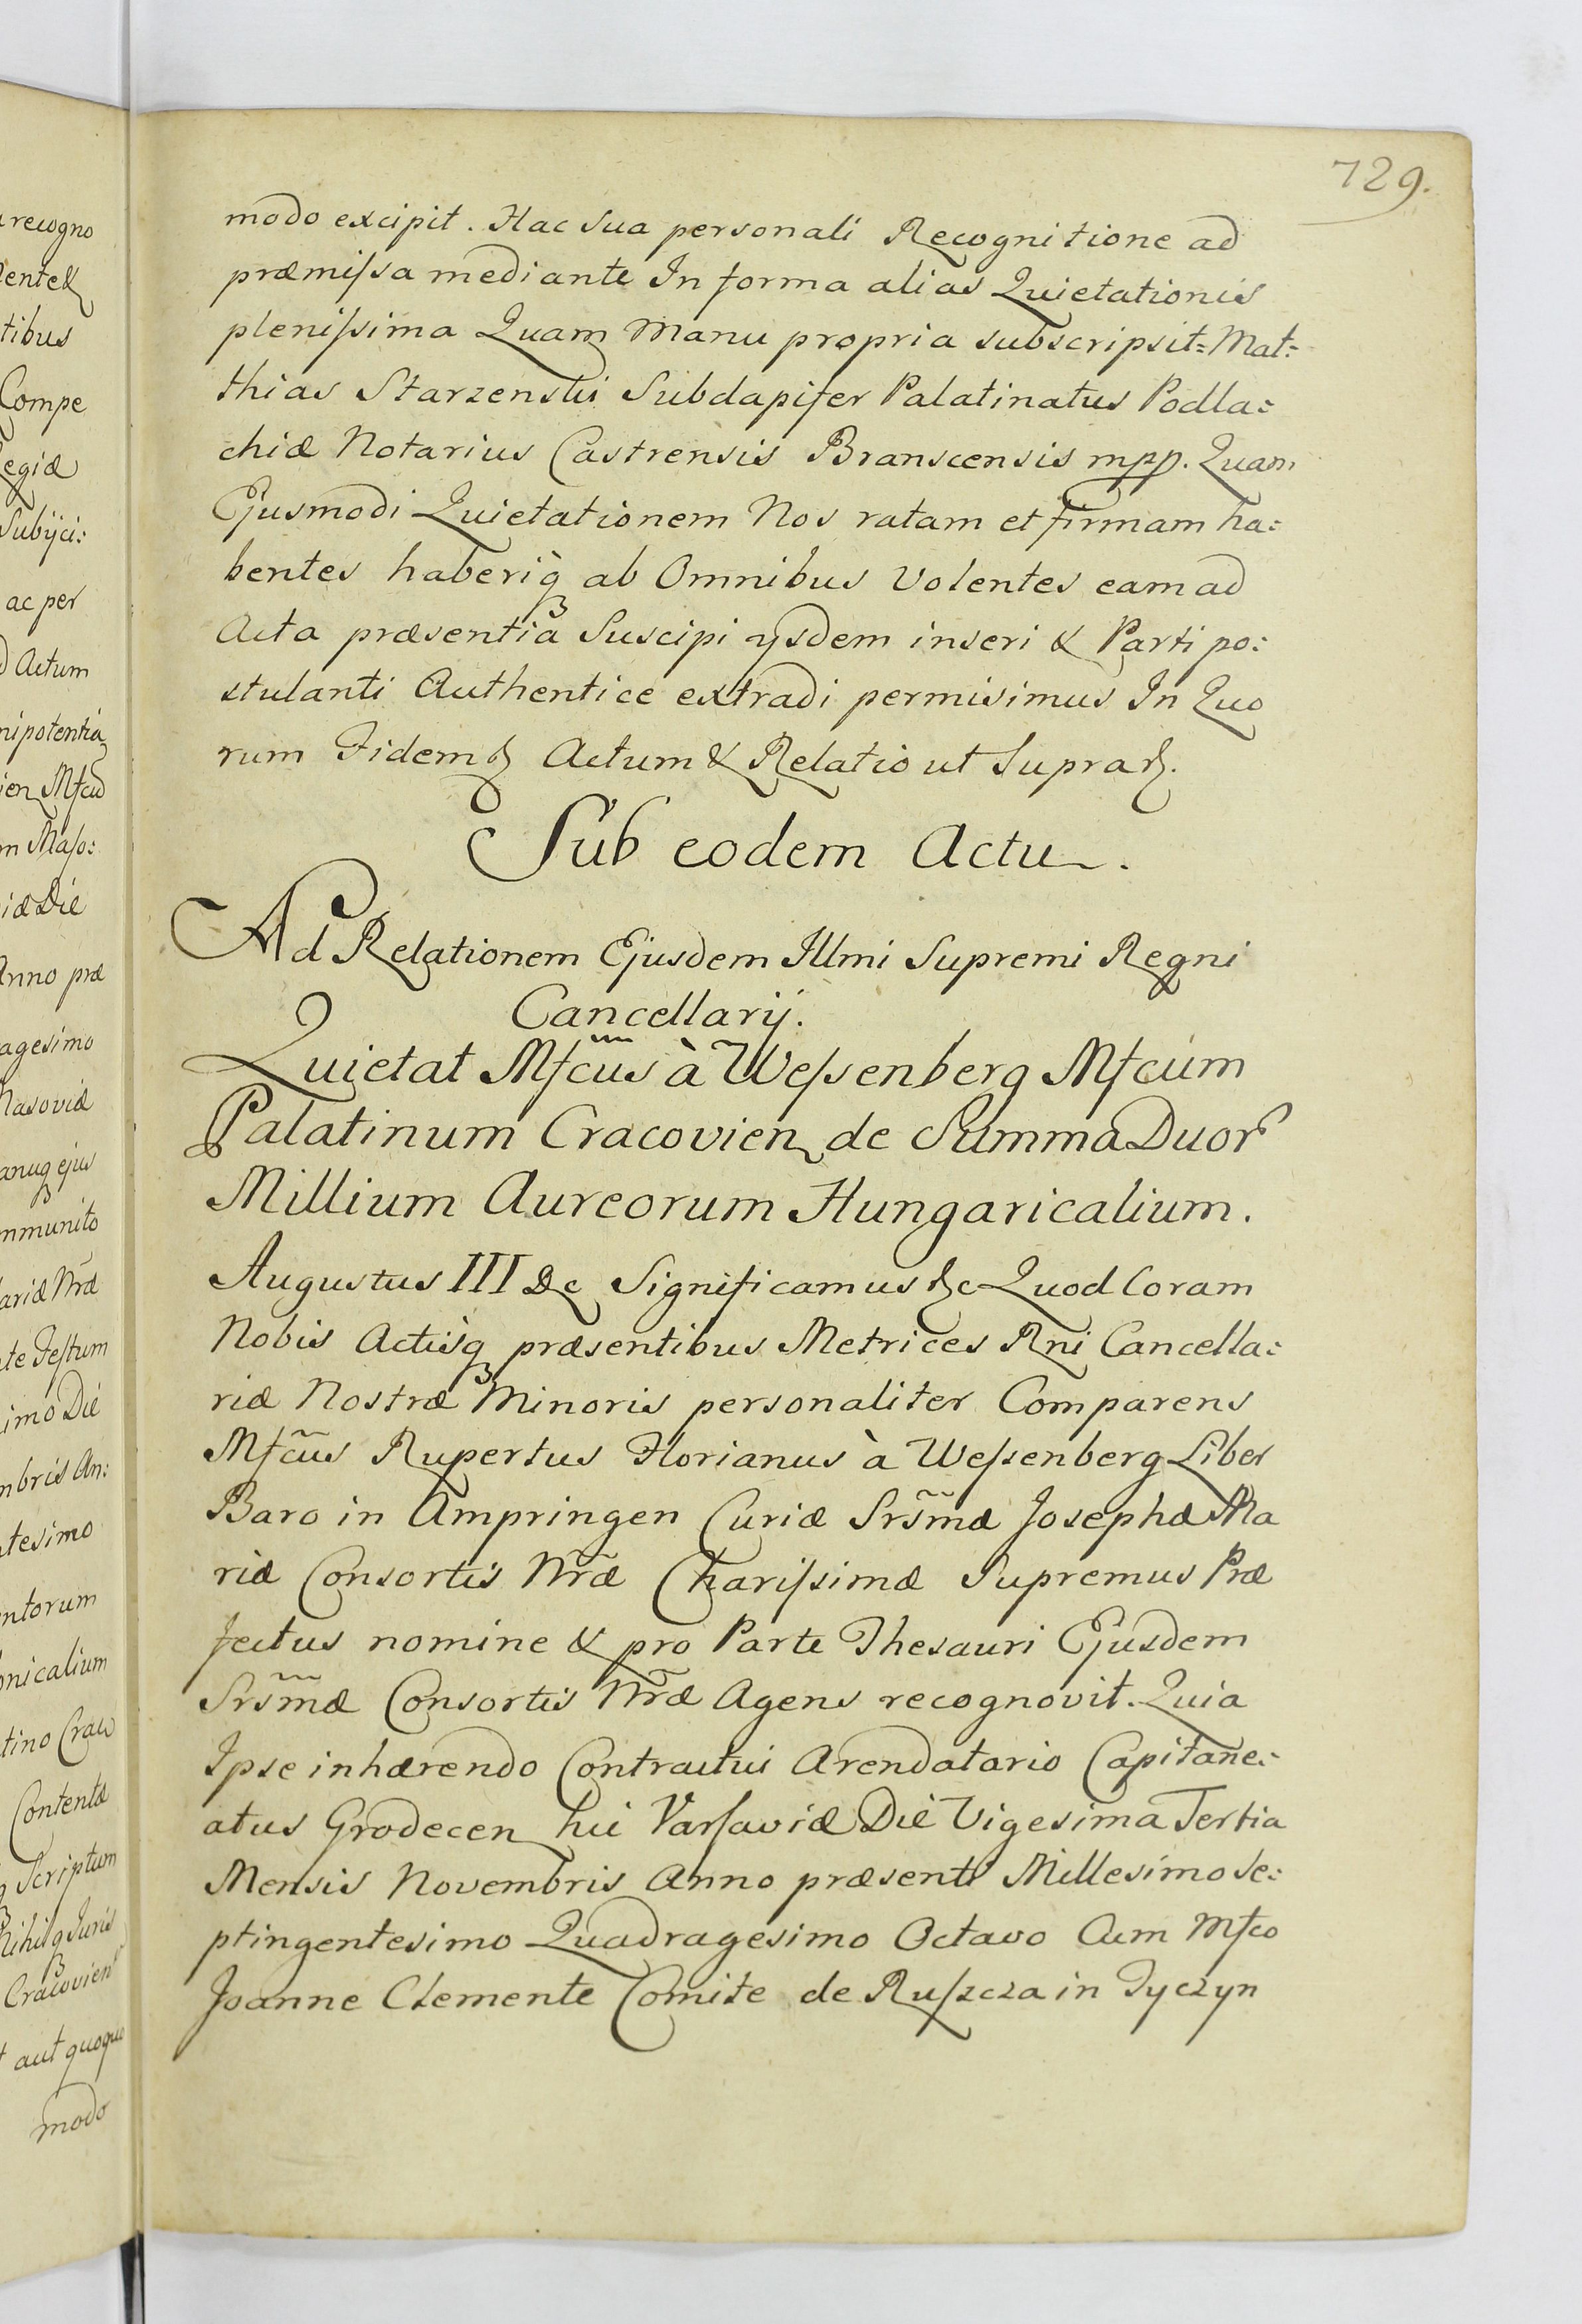 729.
modo excipit. Hac sua personali Recognitione ad
præmissa mediante In forma alias Quietationis
plenissima Quam Manu propria subscripsit= Mat=
thias Starzenski Subdapifer Palatinatus Podla=
chiæ Notarius Castrensis Branscensis mpp. Quam
Ejusmodi Quietationem Nos ratam et firmam ha=
bentes haberiq ab Omnibus Volentes eam ad
Acta præsentia Suscipi ysdem inseri & Parti po=
stulanti Authentice extradi permisimus In Quo
rum Fidem & Actum & Relatio ut Supra &.
Sub eodem Actu.
Ad Relationem Ejusdem Illmi Supremi Regni
Cancellarij.
Quietat Mfcus à Wessenberg Mfcum
Palatinum Cracovien de Summa Duor
Millium Aureorum Hungaricalium.
Augustus III &c Significamus &c Quod Coram
Nobis Actisq præsentibus Metrices Rni Cancella=
riæ Nostræ Minoris personaliter Comparens
Mfcus Rupertus Florianus à Wessenberg Liber
Baro in Ampringen Curiæ Srsmæ Josephæ Ma
riæ Consortis Nræ Charissimæ Supremus Præ
fectus nomine & pro Parte Thesauri Ejusdem
Srsmæ Consortis Nræ Agens recognovit. Quia
Ipse inhærendo Contractui Arendatorio Capitane=
atus Grodecen hic Varsaviæ Die Vigesima Tertia
Mensis Novembris Anno præsenti Millesimo Se=
ptingentesimo Quadragesimo Octavo Cum Mfco
Joanne Clemente Comite de Ruszcza in Tyczyn
recogno
tibus
Compe
egiæ
Subijci=
ac per
Actum
nipotentia
ien Mfcus
m Maso=
iæ Die
Anno præ
agesimo
Masoviæ
ejus
mmunito
ariæ Nræ
te Festum
imo Die
mbris An=
tesimo
ntorum
onicalium
tino Crac
Contentæ
Scriptum
Nihilq Juris
Cracovien
aut quoquo
modo